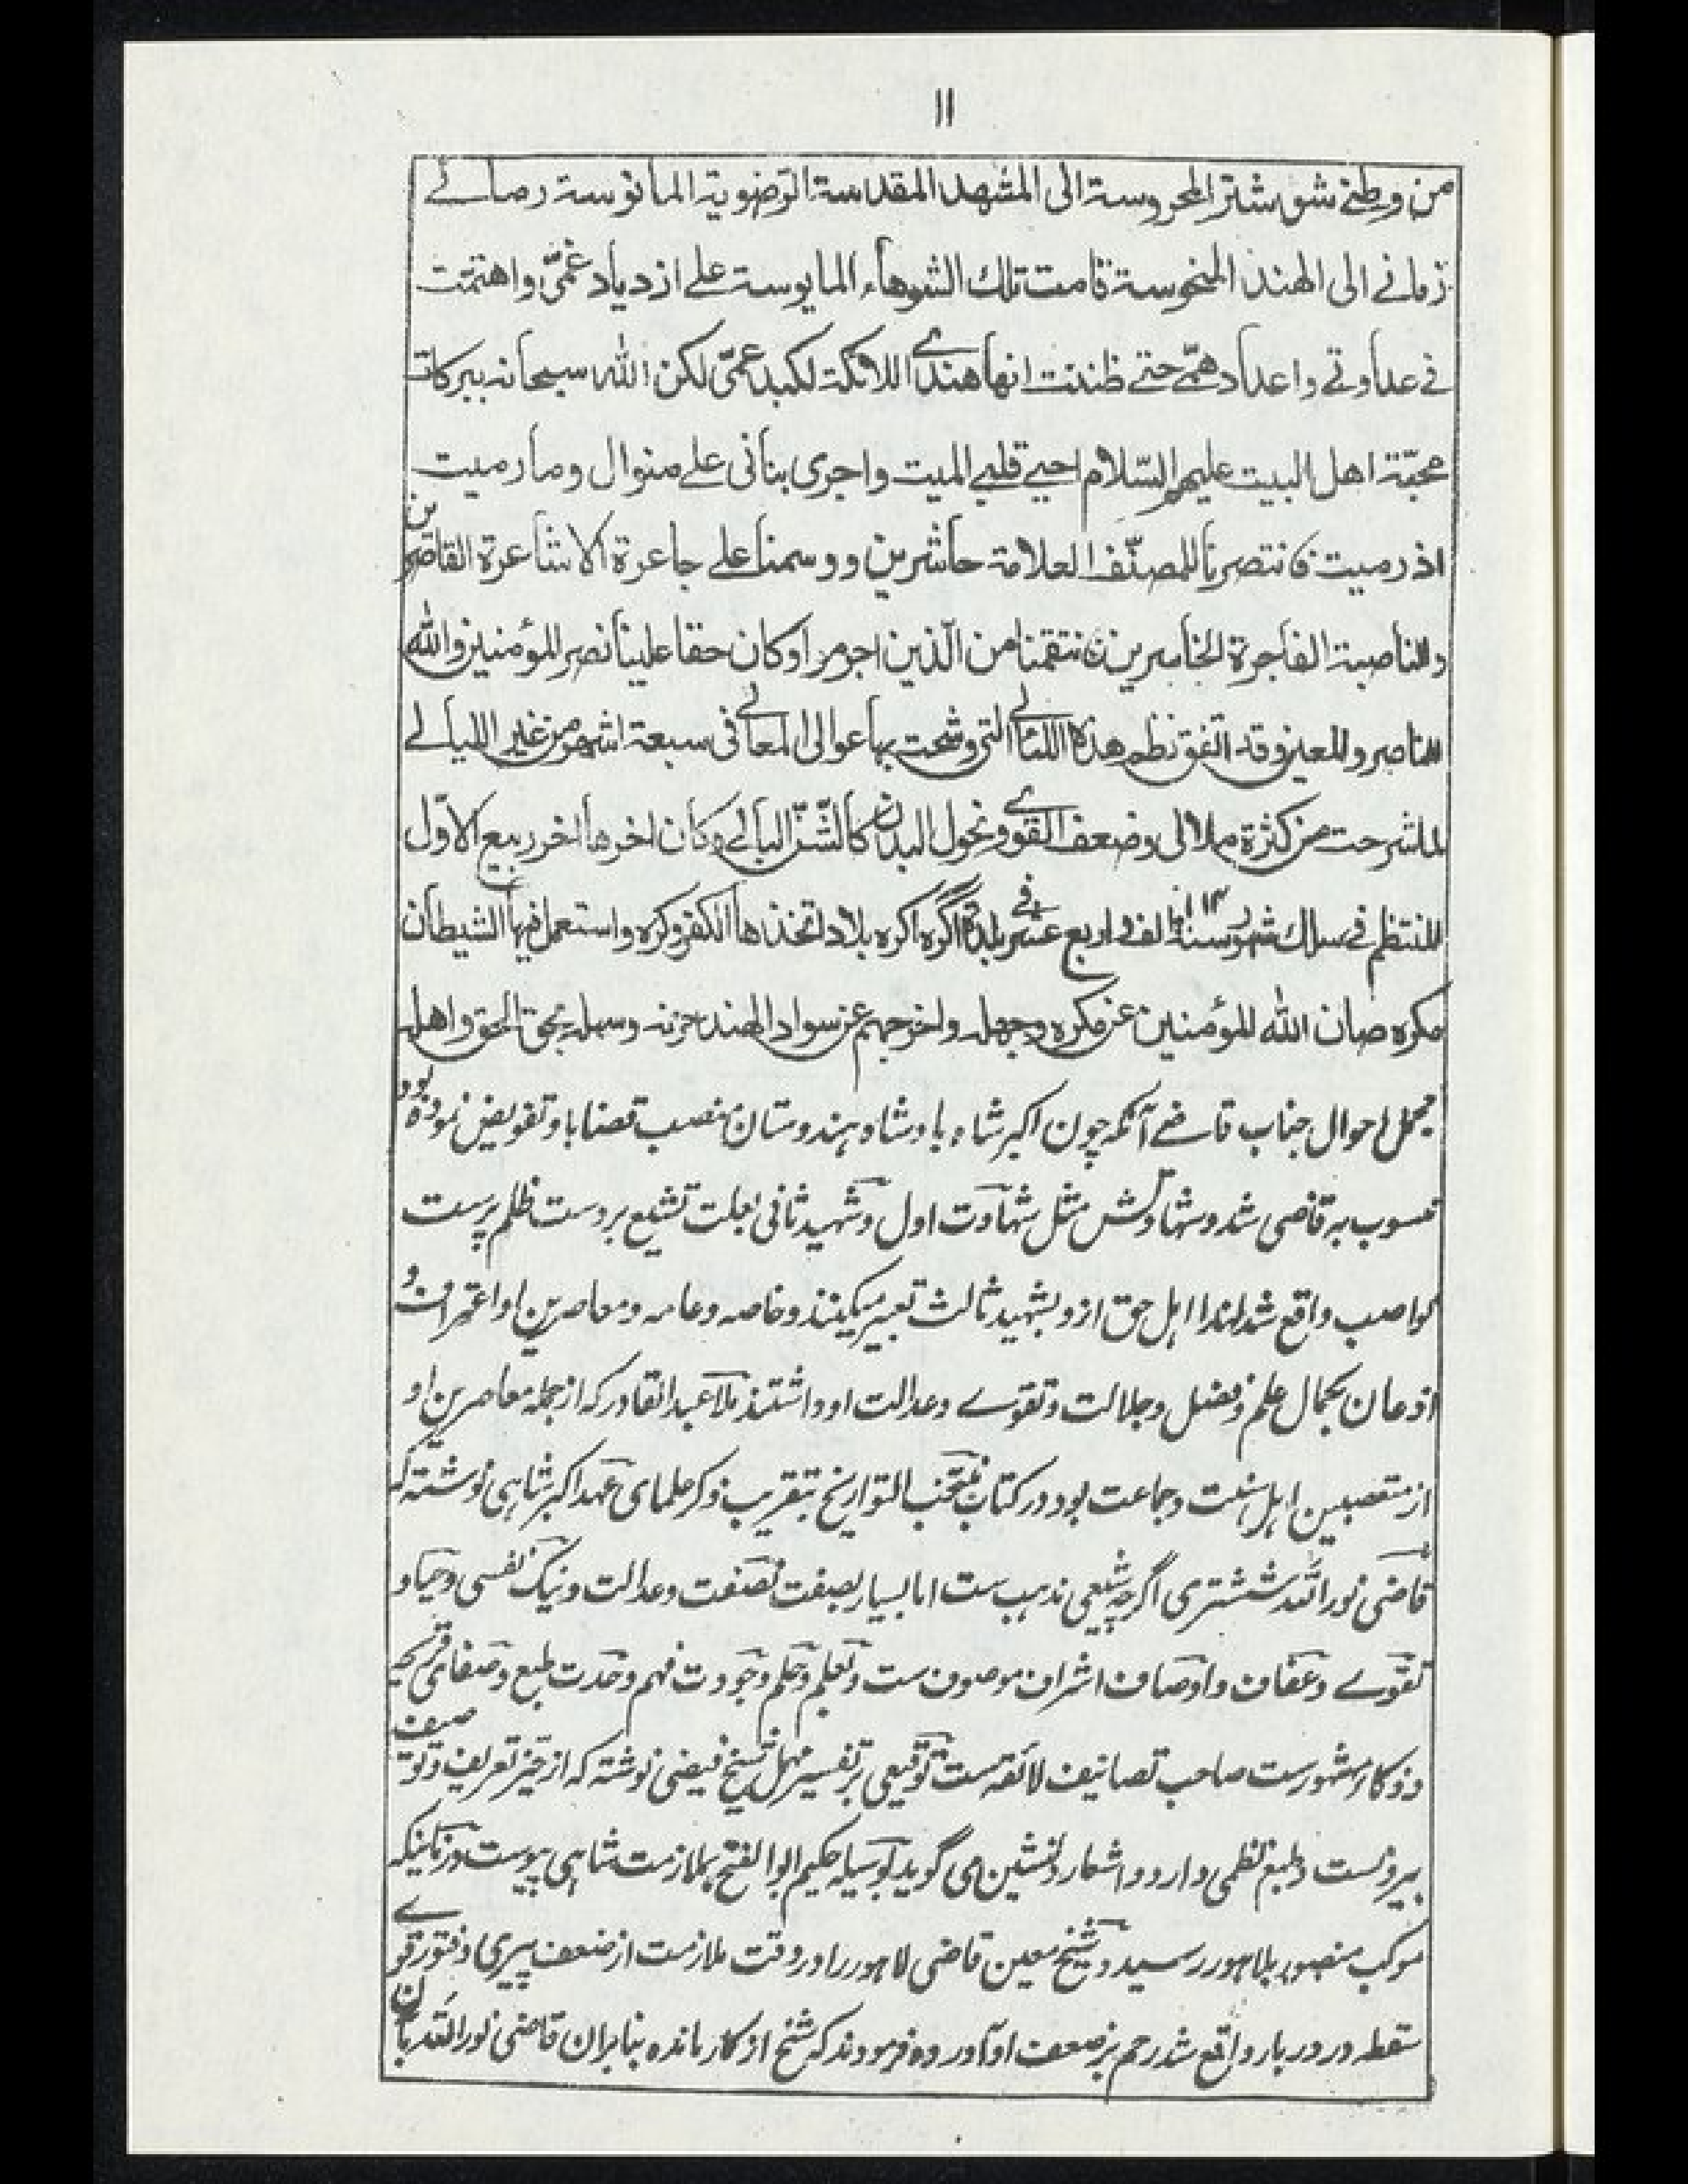 ۱۱
من وطنی شوشتر المحروسة الی المشهد المقدسة الرضویة المانوسة رمانے
زمانے الی الهند المنحوسة قامت تلك الشوهاء المایوسة علی ازدیاد غمّی واهتمت
فی عداوتے واعداد همّے حتی ظننت انها هندے اللائکة لکبد عمّی لکن الله سبحانه ببرکات
محبّة اهل البیت علیهم السّلام احیے قلبی المیت واجری بنانی علی منوال وما رمیت
اذ رمیت فانتصرنا للمصنّف العلامة حاشرین ووسمنا علی جاعرة الاشاعرة القاصرین
والناصبة الفاجرة الخاسرین فانتقمنا من الّذین اجرموا وکان حقا علینا نصر المؤمنین والله
الناصر والمعین وقد اتفق نظم هذه اللئالی التی وشحت بها عوالی المعالے فی سبعة اشهر من غیر اللیالے
لما شرحت من کثرة ملالی وضعف القوے ونحول البدن کالشّنّ البالی وکان اخرها اخر ربیع الاوّل
المنتظم فی سلك شهور سنة ۱۰۱۴ الف و اربع عشر فی بلدة اگره اکره بلاد اتخذها الکفر وکره واستعمل فیها الشیطان
مکره صان الله المؤمنین عن مکره وجهله واخرجهم عن سواد الهند حزنه وسهله بحق الحق واهله
مجمل احوال جناب قاضے آنکه چون اکبر شاه بادشاه هندوستان منصب قضا باو تفویض نموده بود
منسوب به قاضی شد و شهادتش مثل شهادت اول و شهید ثانی بعلت تشیع بر دست ظلم پرست
نواصب واقع شد لهذا اهل حق ازو بشهید ثالث تعبیر میکنند و خاصه و عامه و معاصرین او اعتراف و
اذعان بکمال علم و فضل و جلالت و تقوے و عدالت او داشتند ملا عبدالقادر که از جمله معاصرین او
از متعصبین اهل سنت و جماعت بود در کتاب منتخب التواریخ بتقریب ذکر علمای عهد اکبر شاهی نوشته که
قاضی نور الله ششتری اگرچه شیعی مذهب ست اما بسیار بصفت نصفت و عدالت و نیک نفسی و حیا و
تقوے و عفاف و اوصاف اشراف موصوف ست و بعلم و حلم و جودت فهم و حدت طبع و صفای قریحه
و ذکا مشهورست صاحب تصانیف لائقه ست توقیعی بر تفسیر مهمل شیخ فیضی نوشته که از حیز تعریف و توصیف
بیرونست و طبع نظمی دارد و اشعار دلنشین می گوید بوسیله حکیم ابو الفتح بملازمت شاهی پیوست و زمانیکه
موکب منصور بلاهور رسید و شیخ معین قاضی لاهور را در وقت ملازمت از ضعف پیری و فتور قوے
سقطه در دربار واقع شد رحم بر ضعف او آورده فرمودند که شیخ از کار مانده بنابران قاضی نور الله بان